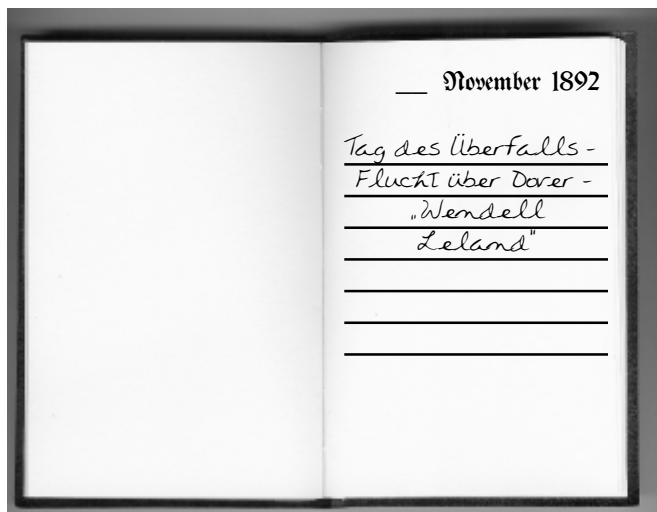 __ November 1892
Tag des Überfalls -
Flucht über Dover -
„Wendell
Leland"